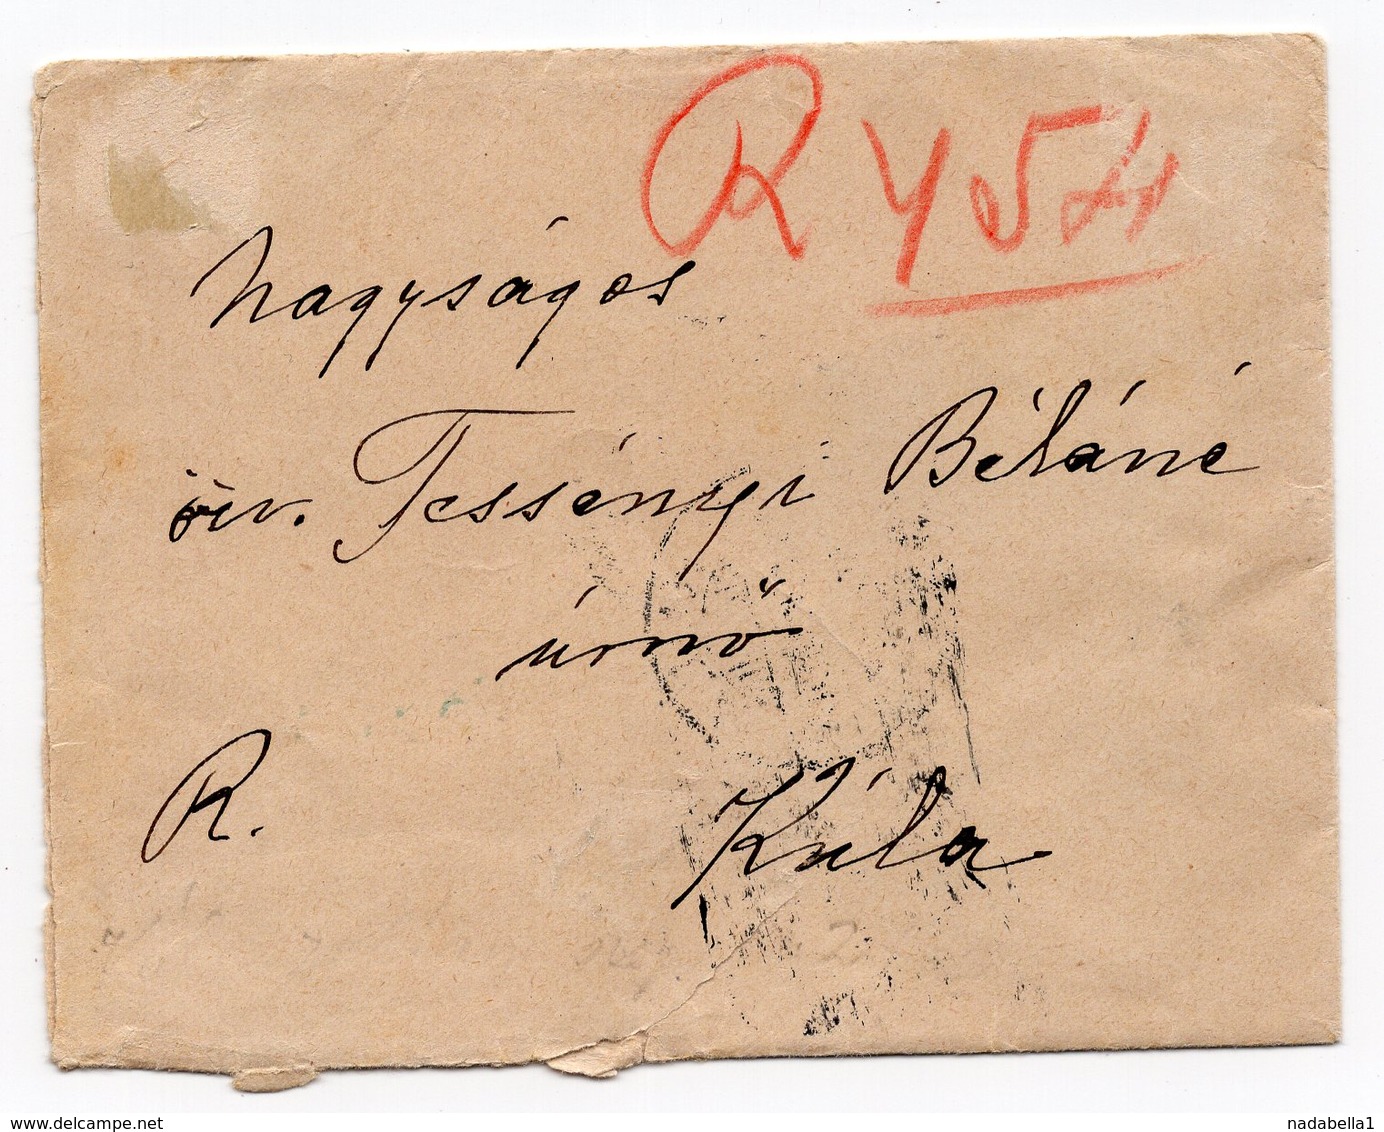 R 454
Nagyságos
özv. Tessényi Béláné
úrnő
R.
Kúla
www.delcampe.net
nadabella1